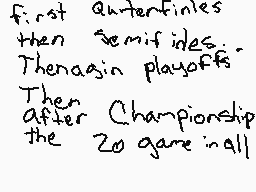 first Quterfinles
then Semifinles..
Thenagin playoffs
Then
after Championship
the 20 game in all